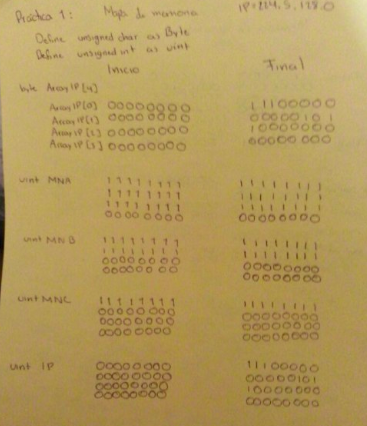 Práctica 1: Mapa de memoria IP=224.5.128.0
Define unsigned char as Byte
Define unsigned int as uint
Inicio Final
byte Array IP [4]
Array IP [0] 00000000 11100000
Array IP [1] 00000000 00000101
Array IP [2] 00000000 10000000
Array IP [3] 00000000 00000000
uint MNA 11111111 11111111
11111111 11111111
11111111 11111111
00000000 00000000
uint MNB 11111111 11111111
11111111 11111111
00000000 00000000
00000000 00000000
uint MNC 11111111 11111111
00000000 00000000
00000000 00000000
00000000 00000000
uint IP 00000000 11100000
00000000 00000101
00000000 10000000
00000000 00000000